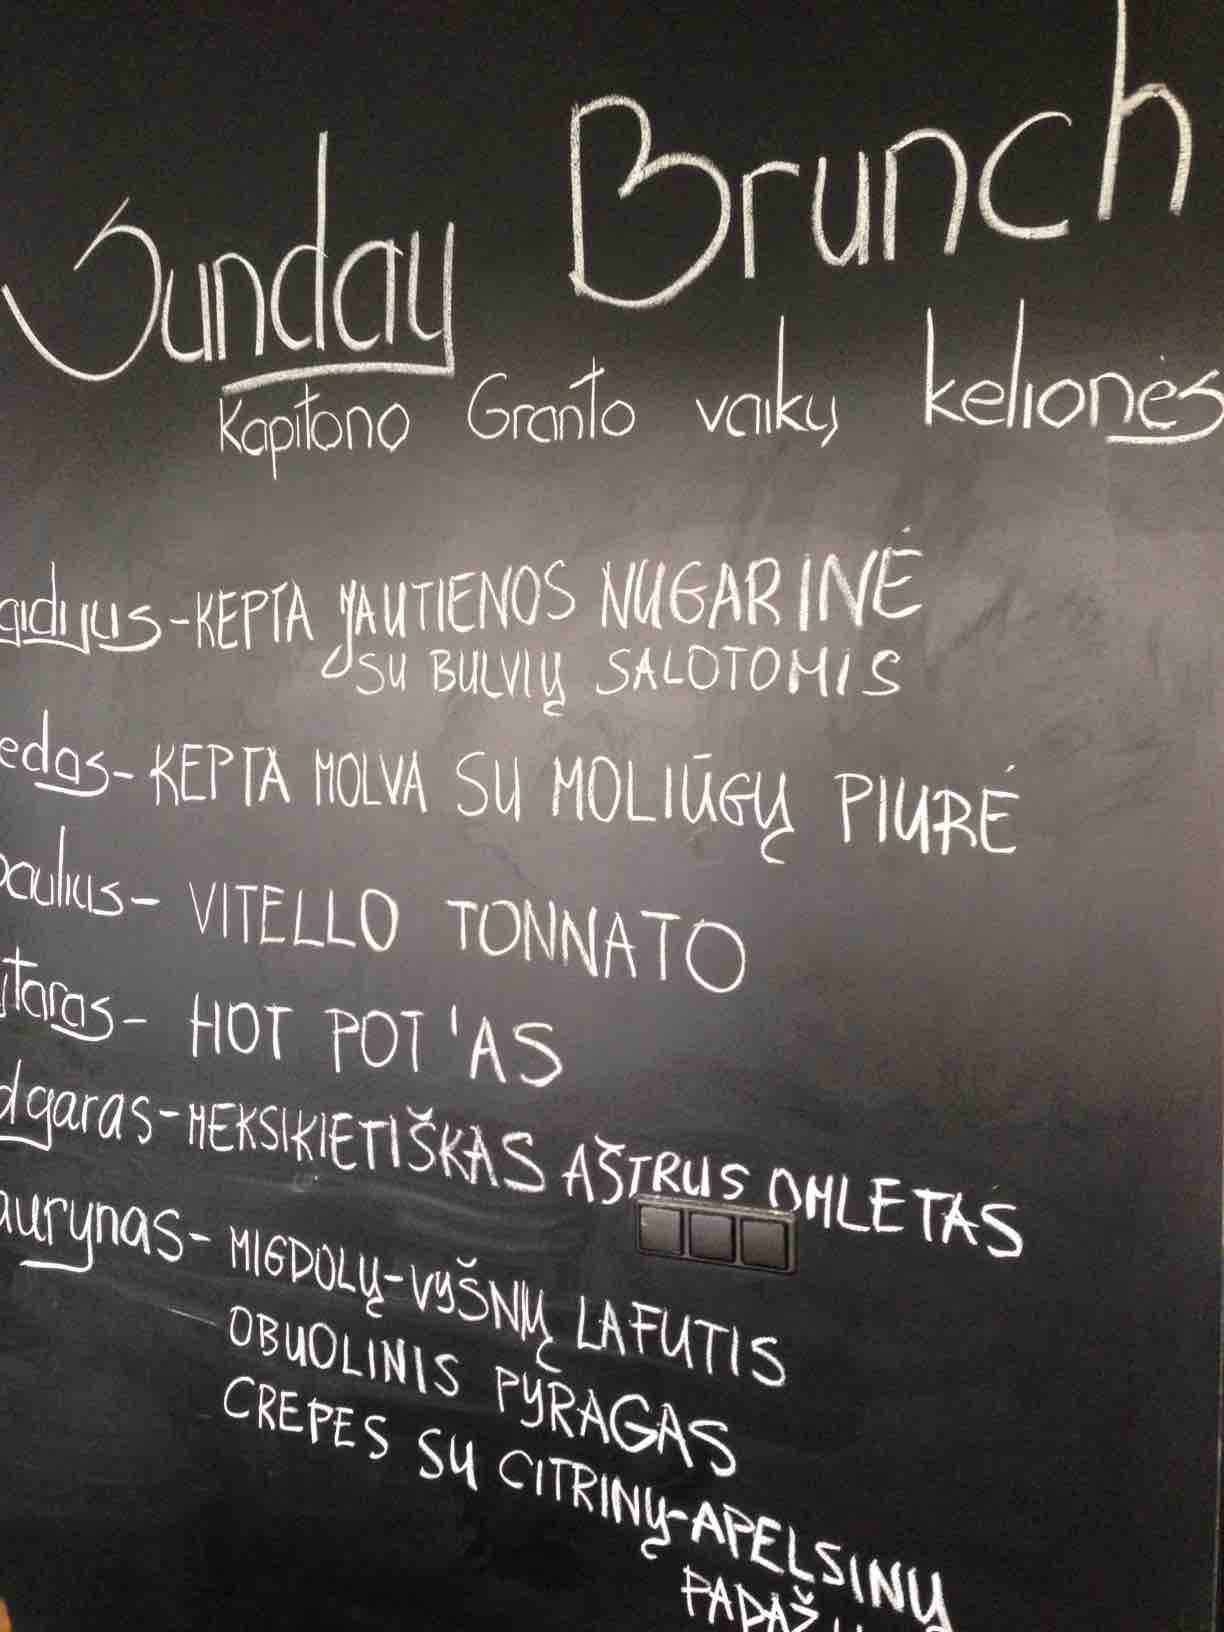 Sunday Brunch
Kapitono Granto vaikų kelionės
gidijus - KEPTA JAUTIENOS NUGARINĖ
SU BULVIŲ SALOTOMIS
edas - KEPTA MOLVA SU MOLIŪGŲ PIURĖ
paulius - VITELLO TONNATO
ytaras - HOT POT'AS
dgaras - MEKSIKIETIŠKAS AŠTRUS OMLETAS
aurynas - MIGDOLŲ-VYŠNIŲ LAFUTIS
OBUOLINIS PYRAGAS
CREPES SU CITRINŲ-APELSINŲ